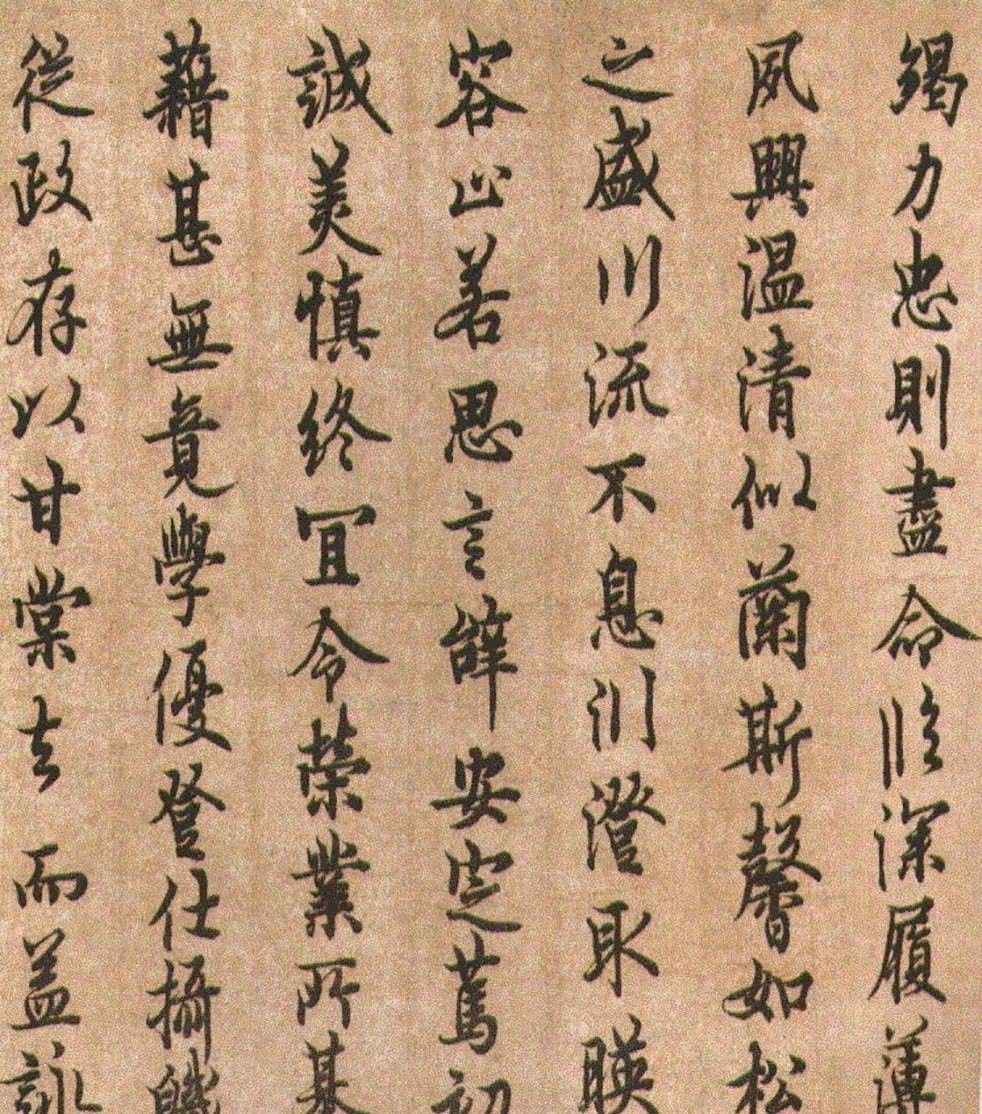 竭力忠則盡命临深履薄
夙興温清似蘭斯馨如松
之盛川流不息川澄取暎
容止若思言辞安定篤初
誠美慎終宜令榮業所基
藉甚無竟學優登仕攝職
從政存以甘棠去而益詠